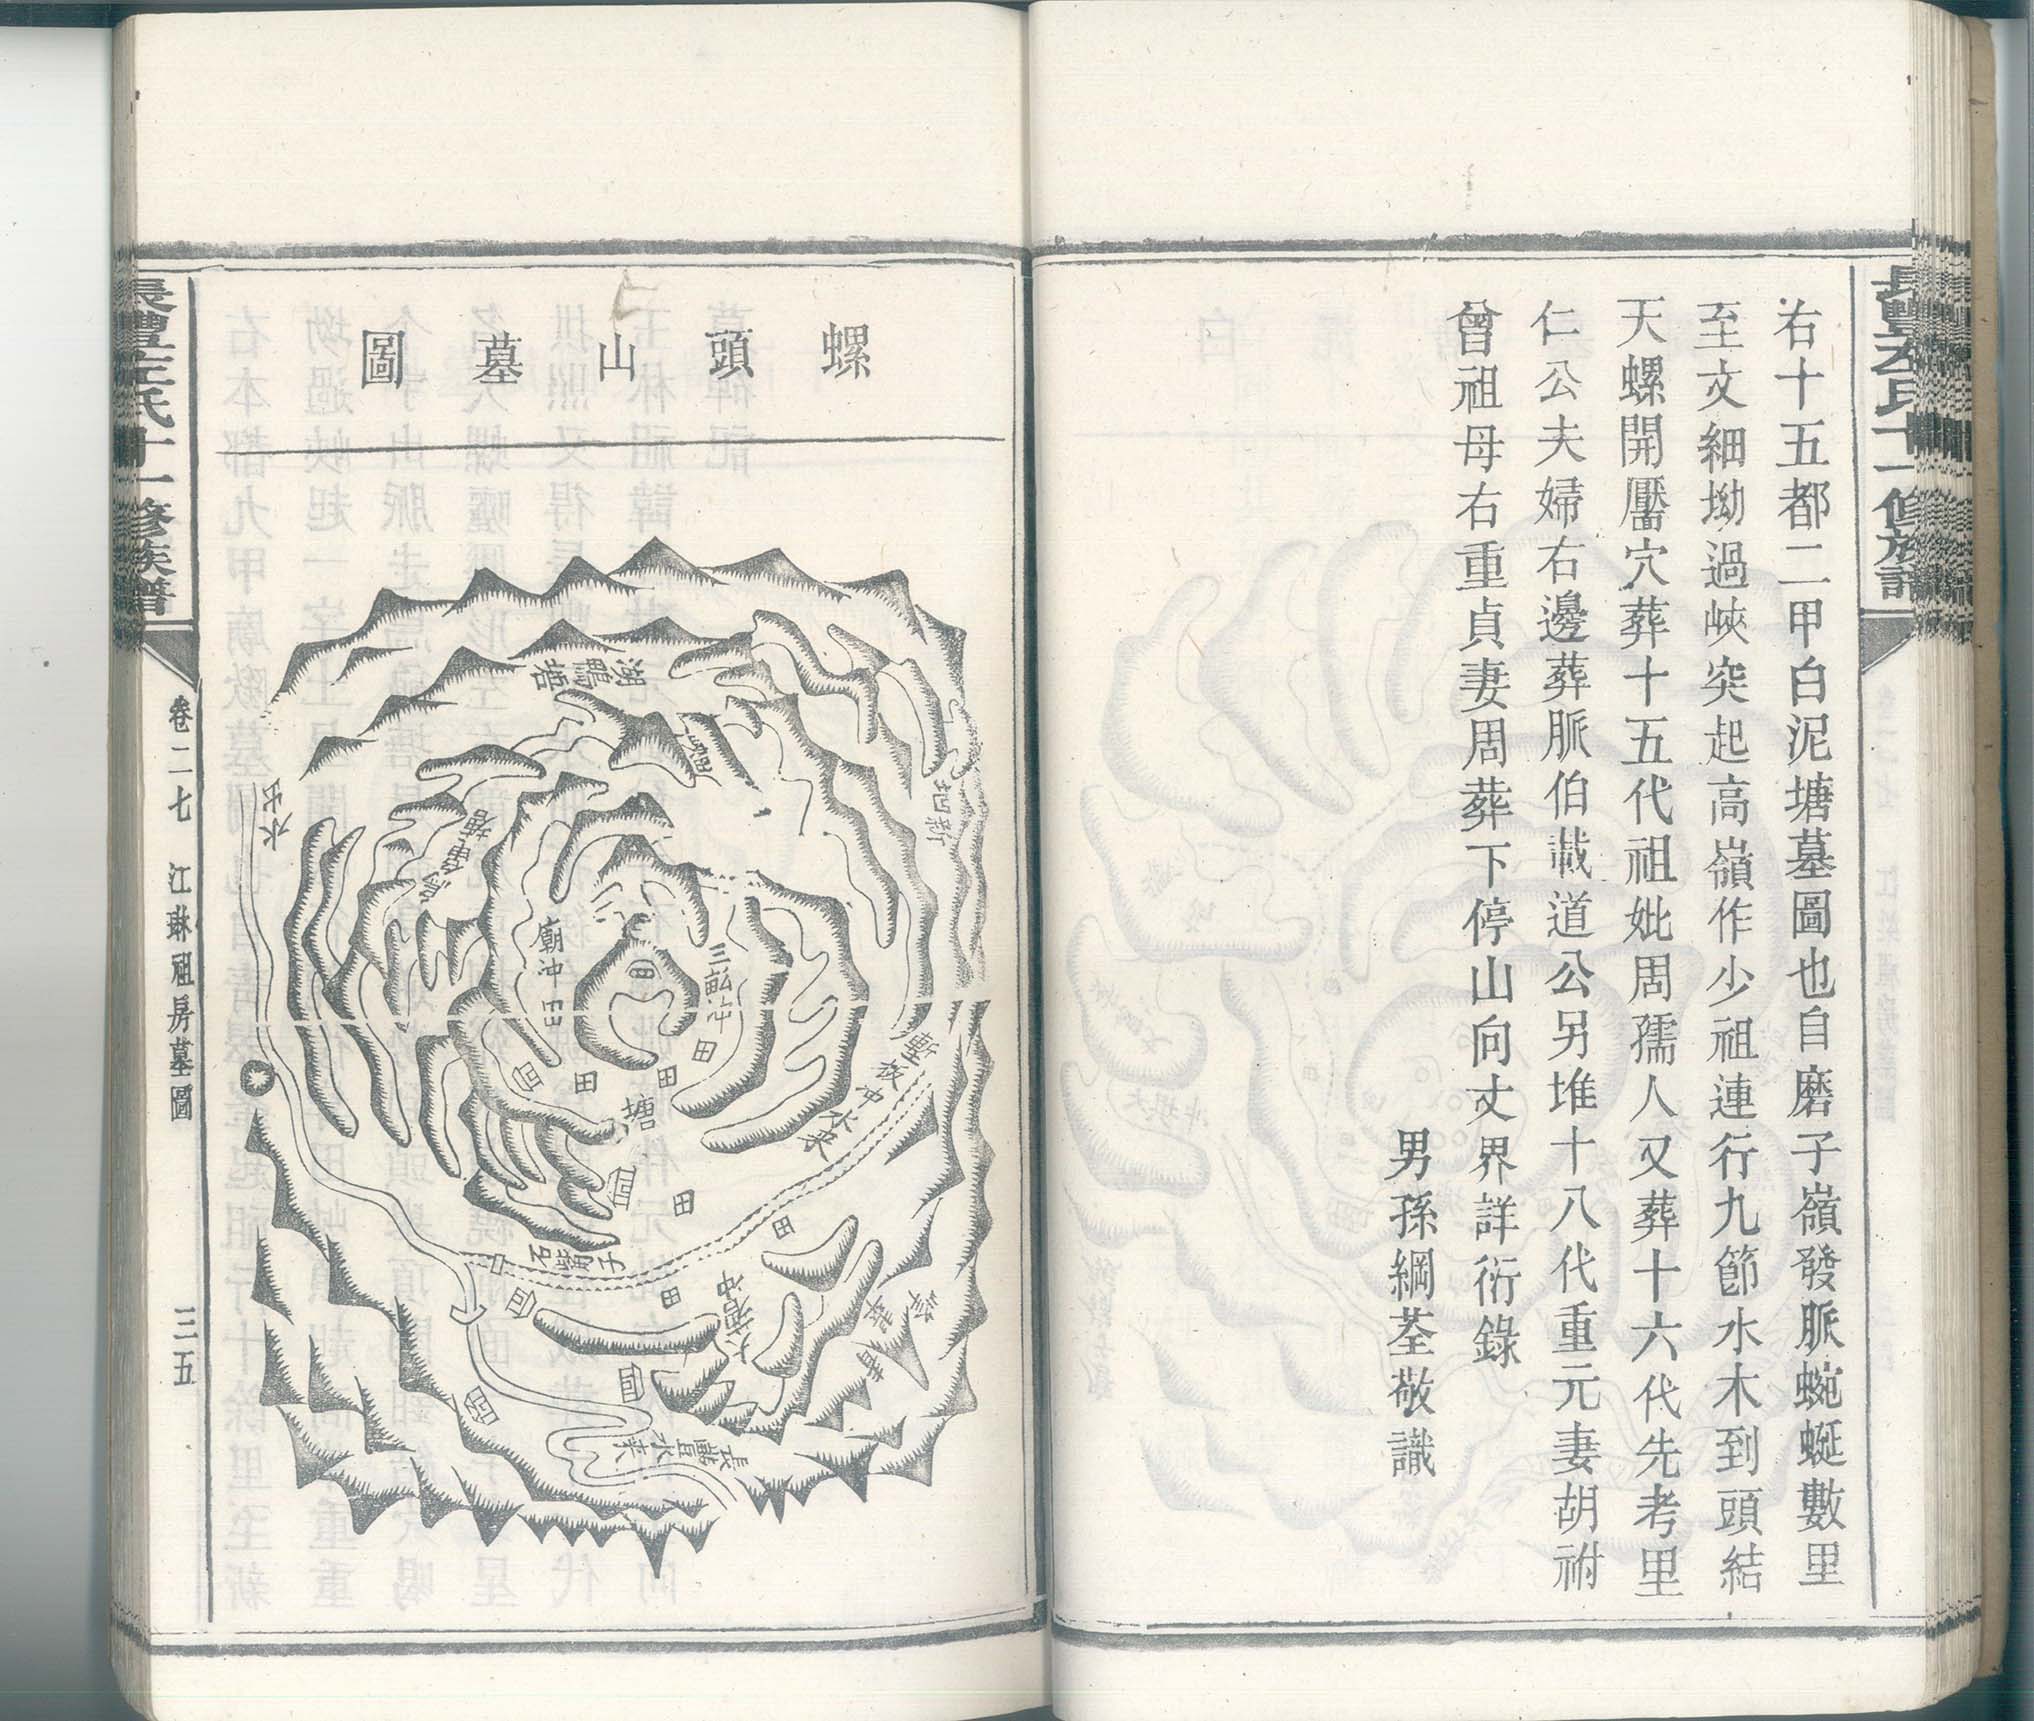 長豐左氏十一修族譜
右十五都二甲白泥塘墓圖也自磨子嶺發脈蜿蜒數里
至文細坳過峽突起高嶺作少祖連行九節水木到頭結
天螺開靨穴葬十五代祖妣周孺人又葬十六代先考里
仁公夫婦右邊葬脈伯載道公另堆十八代重元妻胡祔
曾祖母右重貞妻周葬下停山向丈界詳衍錄
男孫綱荃敬識
螺頭山墓圖
湖鴨塘
新地
水出
廟沖田
三畝沖
田
田
田
塘
塹板沖水來
田
田
田
石子
長豐水來
長豐左氏十一修族譜
卷二七
江琳祖房墓圖
三五